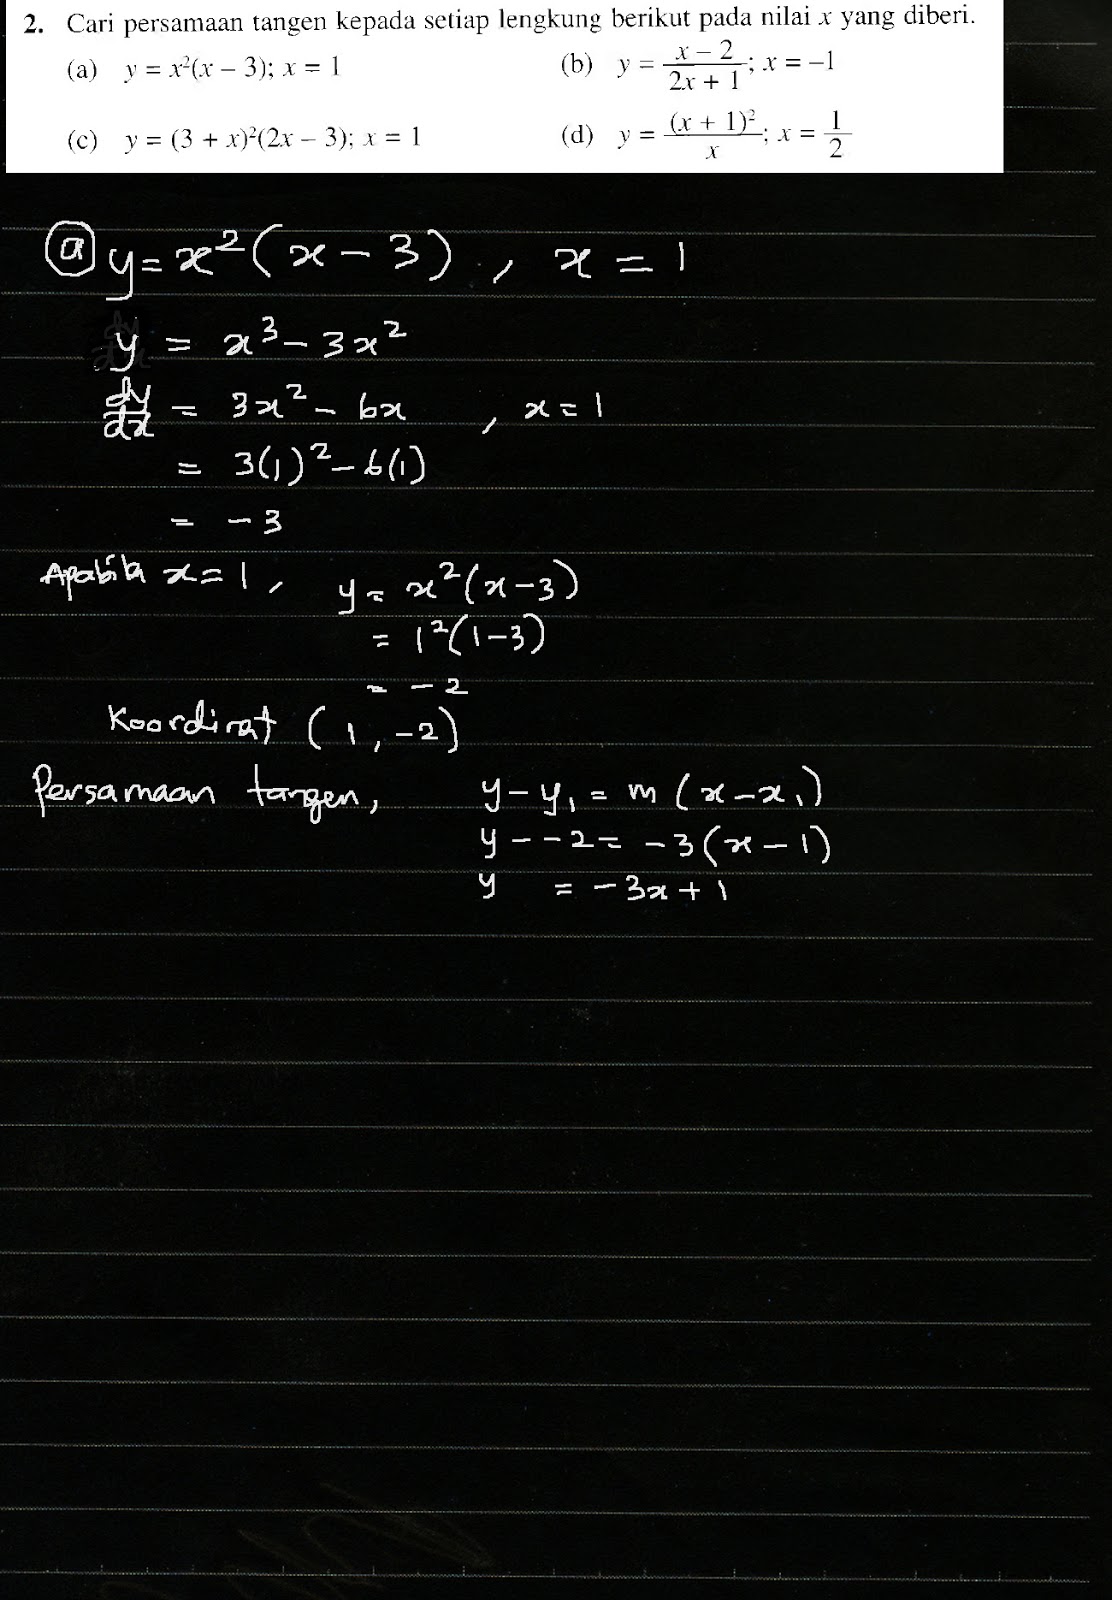 2. Cari persamaan tangen kepada setiap lengkung berikut pada nilai x yang diberi.
(a) y = x²(x – 3); x = 1 (b) y = (x – 2)/(2x + 1); x = –1
(c) y = (3 + x)²(2x – 3); x = 1 (d) y = (x + 1)²/x; x = 1/2
ⓐ y = x²(x – 3), x = 1
y = x³ – 3x²
dy/dx = 3x² – 6x, x = 1
= 3(1)² – 6(1)
= – 3
Apabila x = 1, y = x²(x – 3)
= 1²(1 – 3)
= – 2
Koordinat (1, –2)
Persamaan tangen, y – y₁ = m(x – x₁)
y – – 2 = – 3(x – 1)
y = – 3x + 1